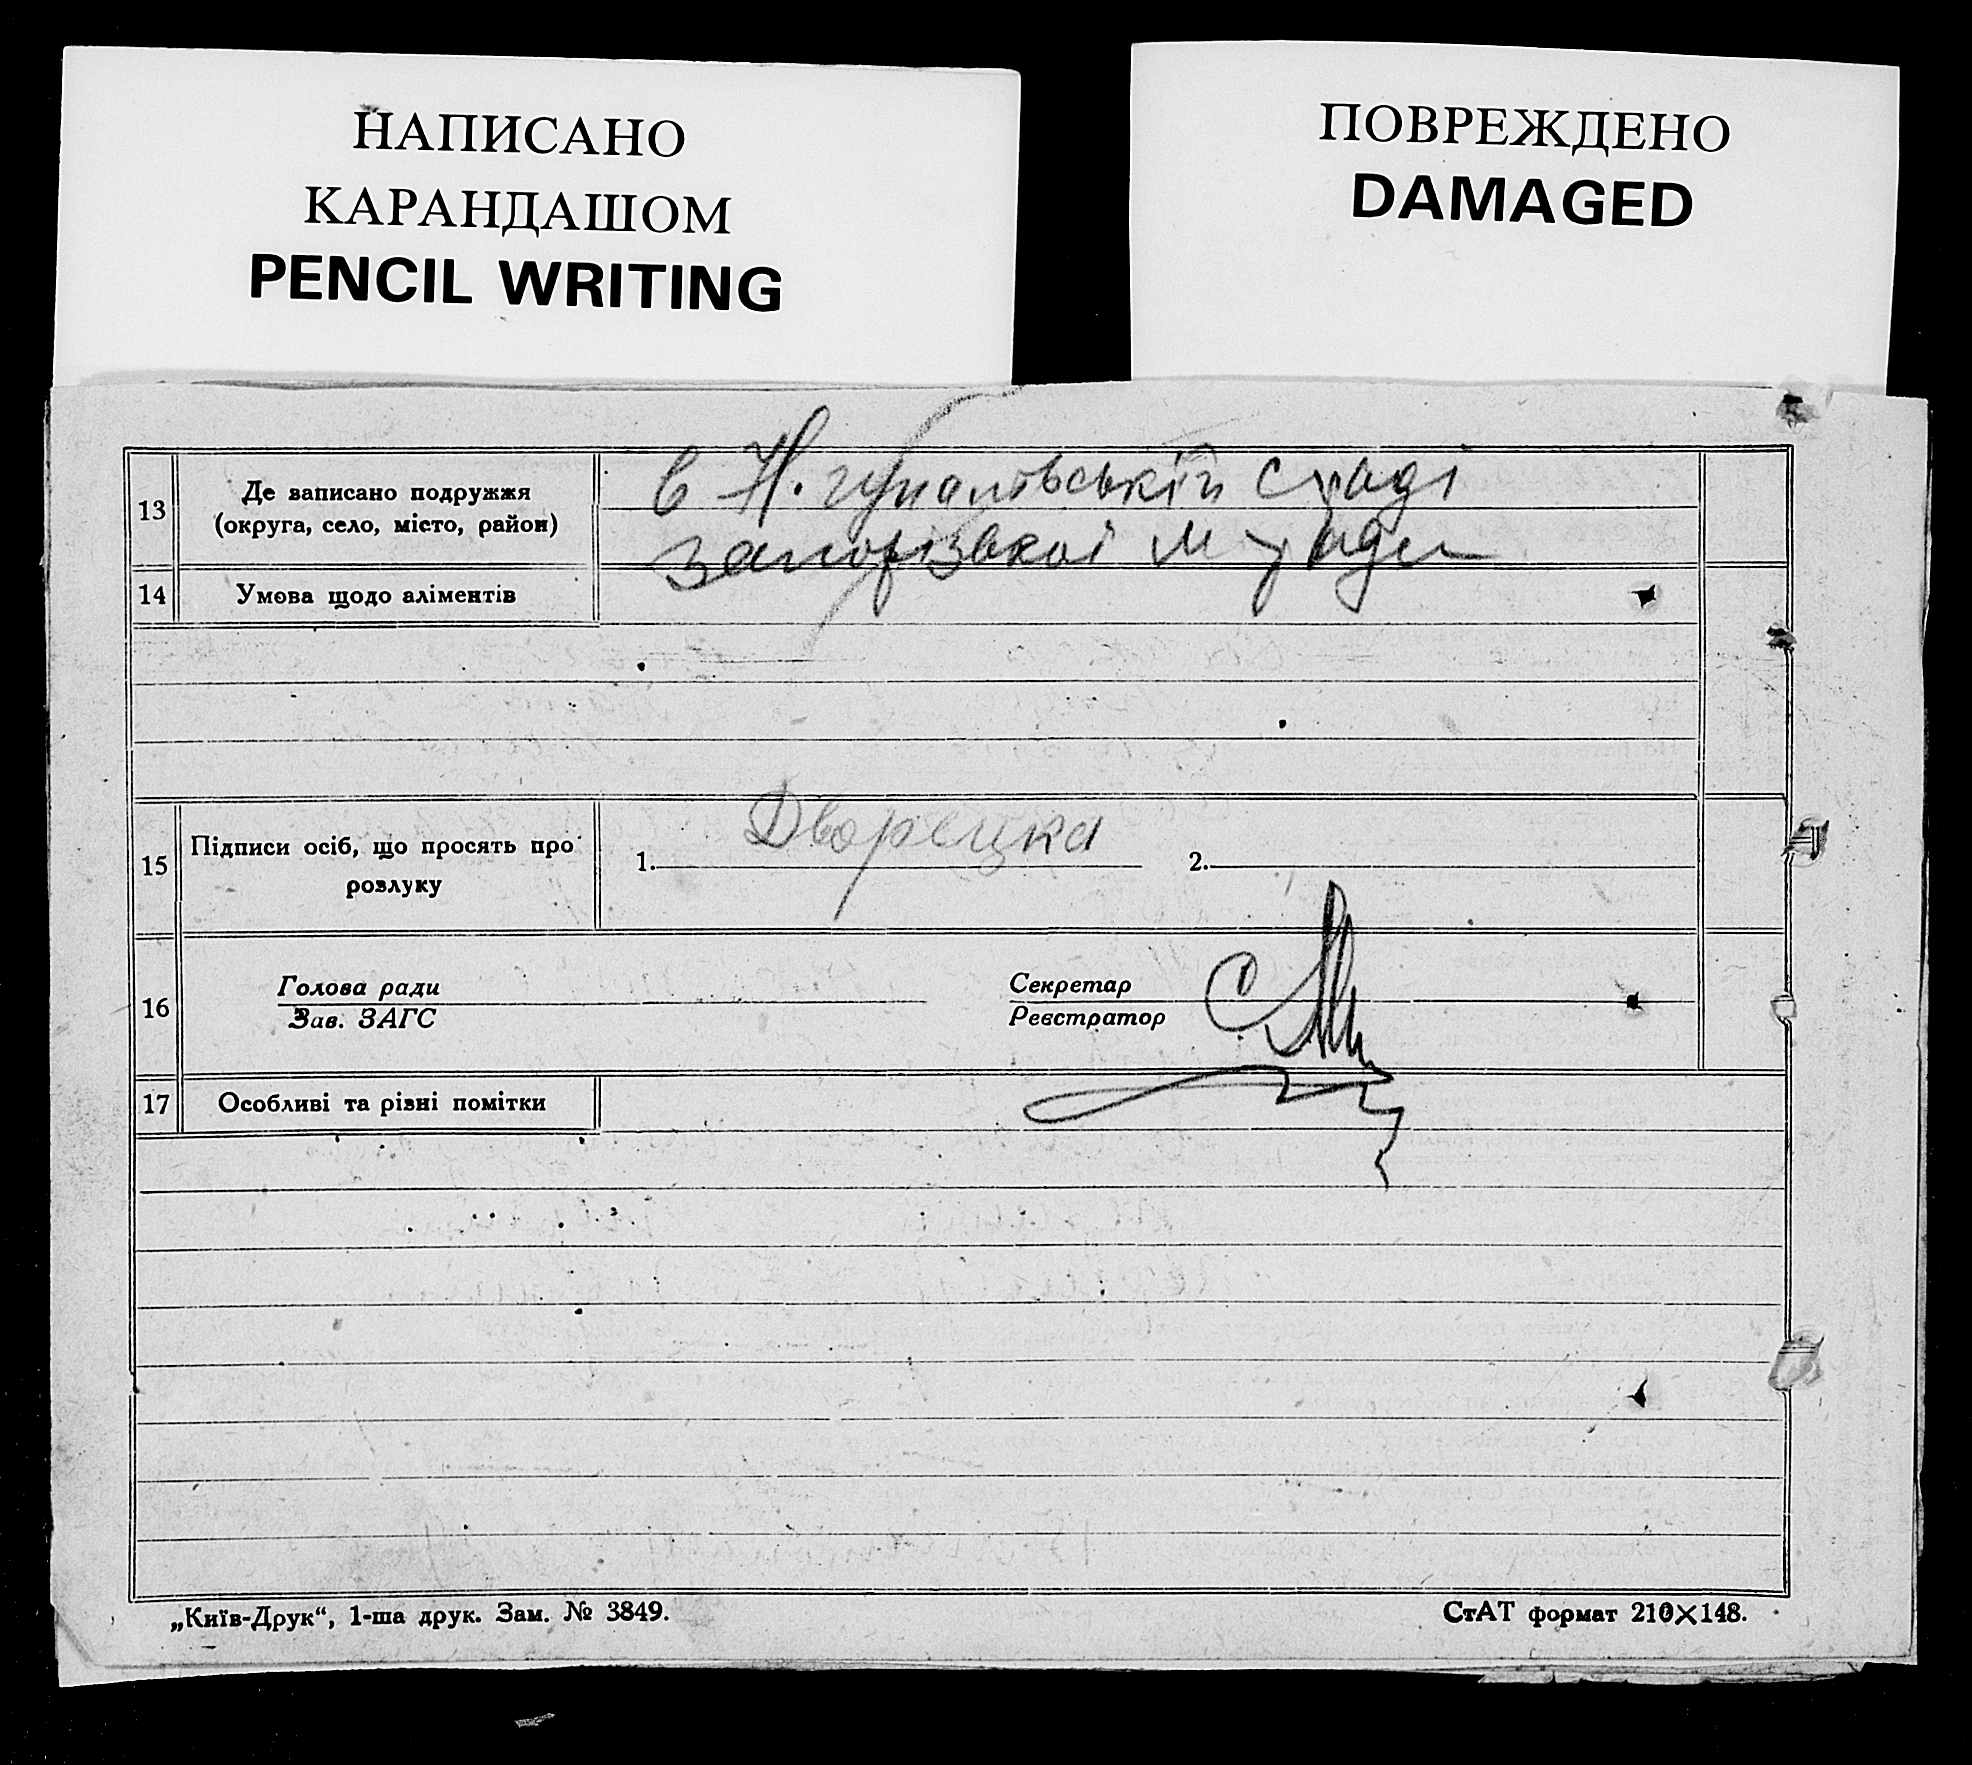 НАПИСАНО
КАРАНДАШОМ
PENCIL WRITING
ПОВРЕЖДЕНО
DAMAGED
13 Де записано подружжя
(округа, село, місто, район)
в Н. сраді
запорізької м ради
14 Умова щодо аліментів
15 Підписи осіб, що просять про
розлуку
1. Дворецка 2.
16 Голова ради
Зав. ЗАГС
Секретар
Реєстратор
17 Особливі та різні помітки
„Київ-Друк“, 1-ша друк. Зам. № 3849.
СтАТ формат 210×148.